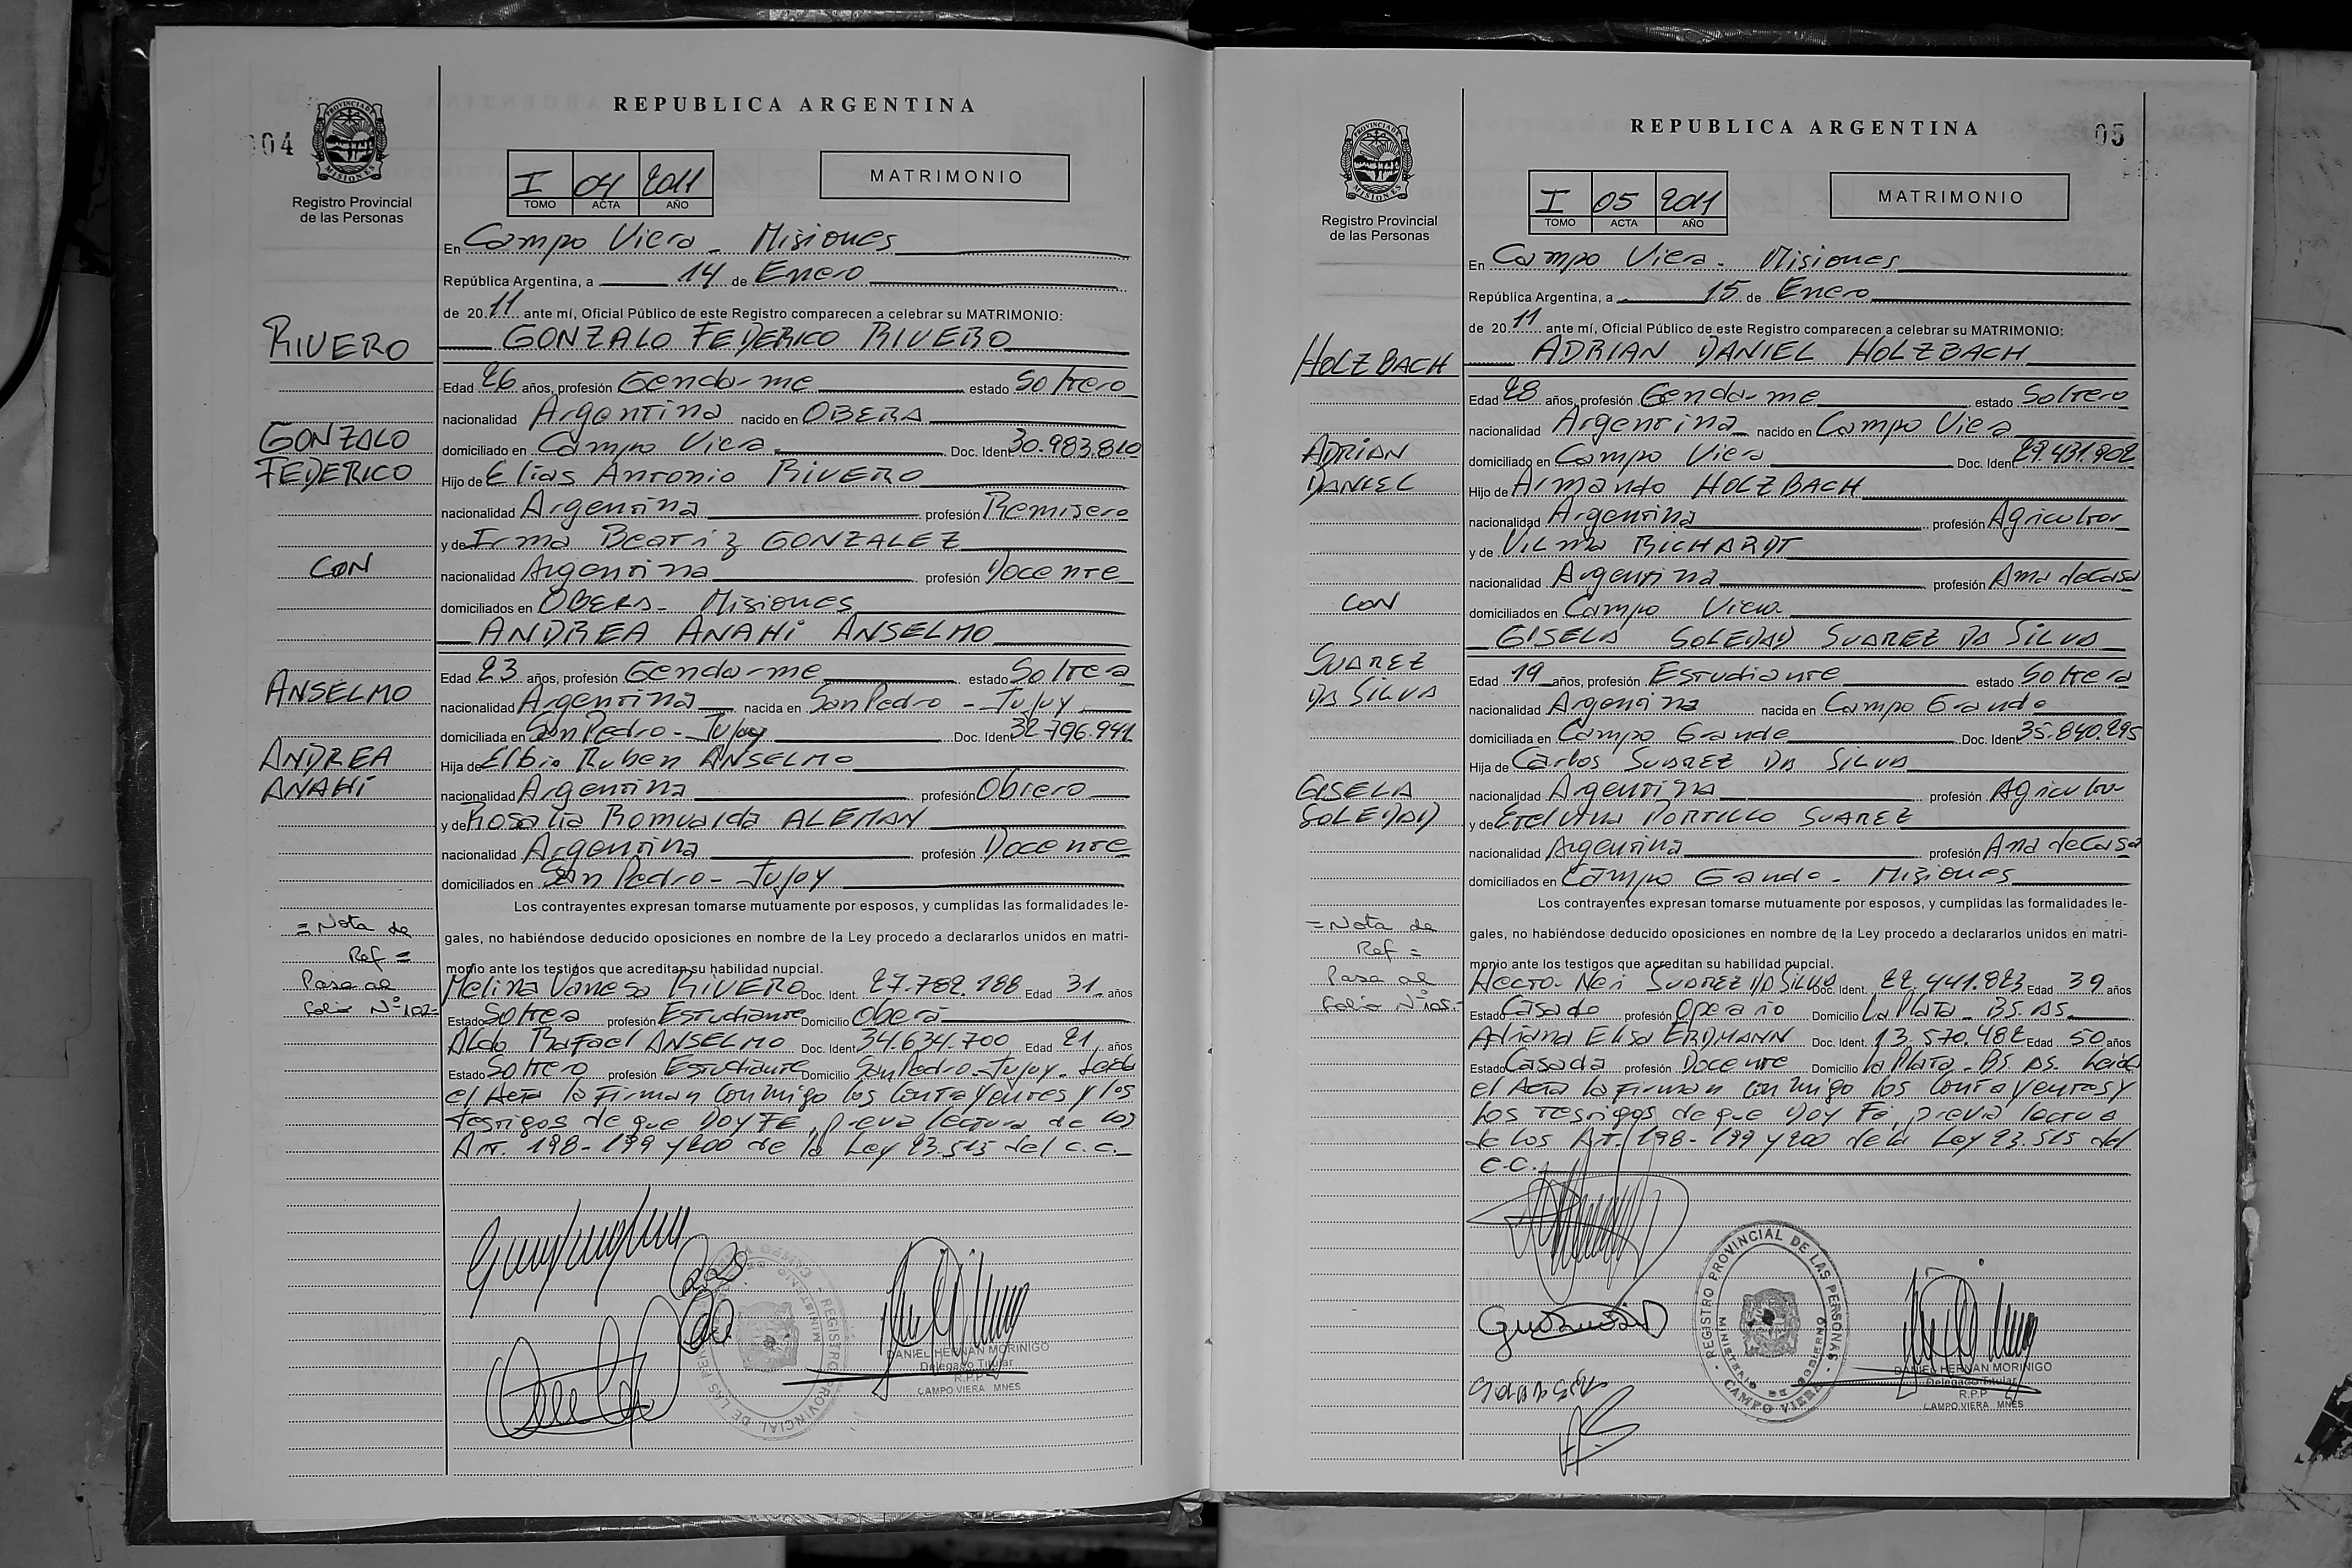 004
PROVINCIA DE
MISIONES
Registro Provincial
de las Personas
REPUBLICA ARGENTINA
I 04 2011
TOMO ACTA AÑO
MATRIMONIO
En Campo Viera - Misiones
República Argentina, a 14 de Enero
de 2011 ante mí, Oficial Público de este Registro comparecen a celebrar su MATRIMONIO:
RIVERO
GONZALO FEDERICO RIVERO
Edad 26 años, profesión Gendarme estado Soltero
nacionalidad Argentina nacido en OBERA
GONZALO
domiciliado en Campo Viera Doc. Ident 30.983.810
FEDERICO
Hijo de Elias Antonio RIVERO
nacionalidad Argentina profesión Remisero
y de Irma Beatriz GONZALEZ
CON
nacionalidad Argentina profesión Docente
domiciliados en OBERA - Misiones
ANDREA ANAHI ANSELMO
Edad 23 años, profesión Gendarme estado Soltera
ANSELMO
nacionalidad Argentina nacida en San Pedro - Jujuy
domiciliada en San Pedro - Jujuy Doc. Ident 32.796.941
ANDREA
Hija de Elbio Ruben ANSELMO
ANAHI
nacionalidad Argentina profesión Obrero
y de Rosalia Romualda ALEMAN
nacionalidad Argentina profesión Docente
domiciliados en San Pedro - Jujuy
Los contrayentes expresan tomarse mutuamente por esposos, y cumplidas las formalidades le-
= Nota de
gales, no habiéndose deducido oposiciones en nombre de la Ley procedo a declararlos unidos en matri-
Ref =
monio ante los testigos que acreditan su habilidad nupcial.
Pasa al
Melina Vanesa RIVERO Doc. Ident. 27.782.188 Edad 31 años
Folio Nº 102=
Estado Soltera profesión Estudiante Domicilio Oberá
Aldo Rafael ANSELMO Doc. Ident 34.634.700 Edad 21 años
Estado Soltero profesión Estudiante Domicilio San Pedro - Jujuy - Leida
el Acta la Firman conmigo los Contrayentes y los
testigos de que Doy FE, previa lectura de los
Art. 198 - 199 y 200 de la Ley 23.515 del C.C.
REGISTRO PROVINCIAL DE LAS PERSONAS
MINISTERIO DE GOBIERNO
CAMPO VIERA
DANIEL HERNAN MORINIGO
Delegado Titular
R.P.P
CAMPO VIERA MNES
05
PROVINCIA DE
MISIONES
Registro Provincial
de las Personas
REPUBLICA ARGENTINA
I 05 2011
TOMO ACTA AÑO
MATRIMONIO
En Campo Viera - Misiones
República Argentina, a 15 de Enero
de 2011 ante mí, Oficial Público de este Registro comparecen a celebrar su MATRIMONIO:
HOLZBACH
ADRIAN DANIEL HOLZBACH
Edad 28 años, profesión Gendarme estado Soltero
nacionalidad Argentina nacido en Campo Viera
ADRIAN
domiciliado en Campo Viera Doc. Ident. 29.431.902
DANIEL
Hijo de Armando HOLZBACH
nacionalidad Argentina profesión Agricultor
y de Vilma RICHARDT
nacionalidad Argentina profesión Ama de Casa
CON
domiciliados en Campo Viera
GISELA SOLEDAD SUAREZ DA SILVA
SUAREZ
Edad 19 años, profesión Estudiante estado Soltera
DA SILVA
nacionalidad Argentina nacida en Campo Grande
domiciliada en Campo Grande Doc. Ident 35.840.295
Hija de Carlos SUAREZ DA SILVA
GISELA
nacionalidad Argentina profesión Agricultor
SOLEDAD
y de Etelvina PORTILLO SUAREZ
nacionalidad Argentina profesión Ama de Casa
domiciliados en Campo Grande - Misiones
Los contrayentes expresan tomarse mutuamente por esposos, y cumplidas las formalidades le-
= Nota de
gales, no habiéndose deducido oposiciones en nombre de la Ley procedo a declararlos unidos en matri-
Ref =
monio ante los testigos que acreditan su habilidad nupcial.
Pasa al
Hector Neri SUAREZ DA SILVA Doc. Ident. 22.441.823 Edad 39 años
Folio Nº 105.-
Estado Casado profesión Operario Domicilio La Plata - BS. AS.
Adriana Elisa ERDMANN Doc. Ident. 13.570.482 Edad 50 años
Estado Casada profesión Docente Domicilio La Plata - BS. AS. Leida
el Acta la Firman conmigo los Contrayentes y
los testigos de que Doy Fé, previa lectura
de los Art. 198 - 199 y 200 de la Ley 23.515 del
C.C.
REGISTRO PROVINCIAL DE LAS PERSONAS
MINISTERIO DE GOBIERNO
CAMPO VIERA
DANIEL HERNAN MORINIGO
Delegado Titular
R.P.P
CAMPO VIERA MNES